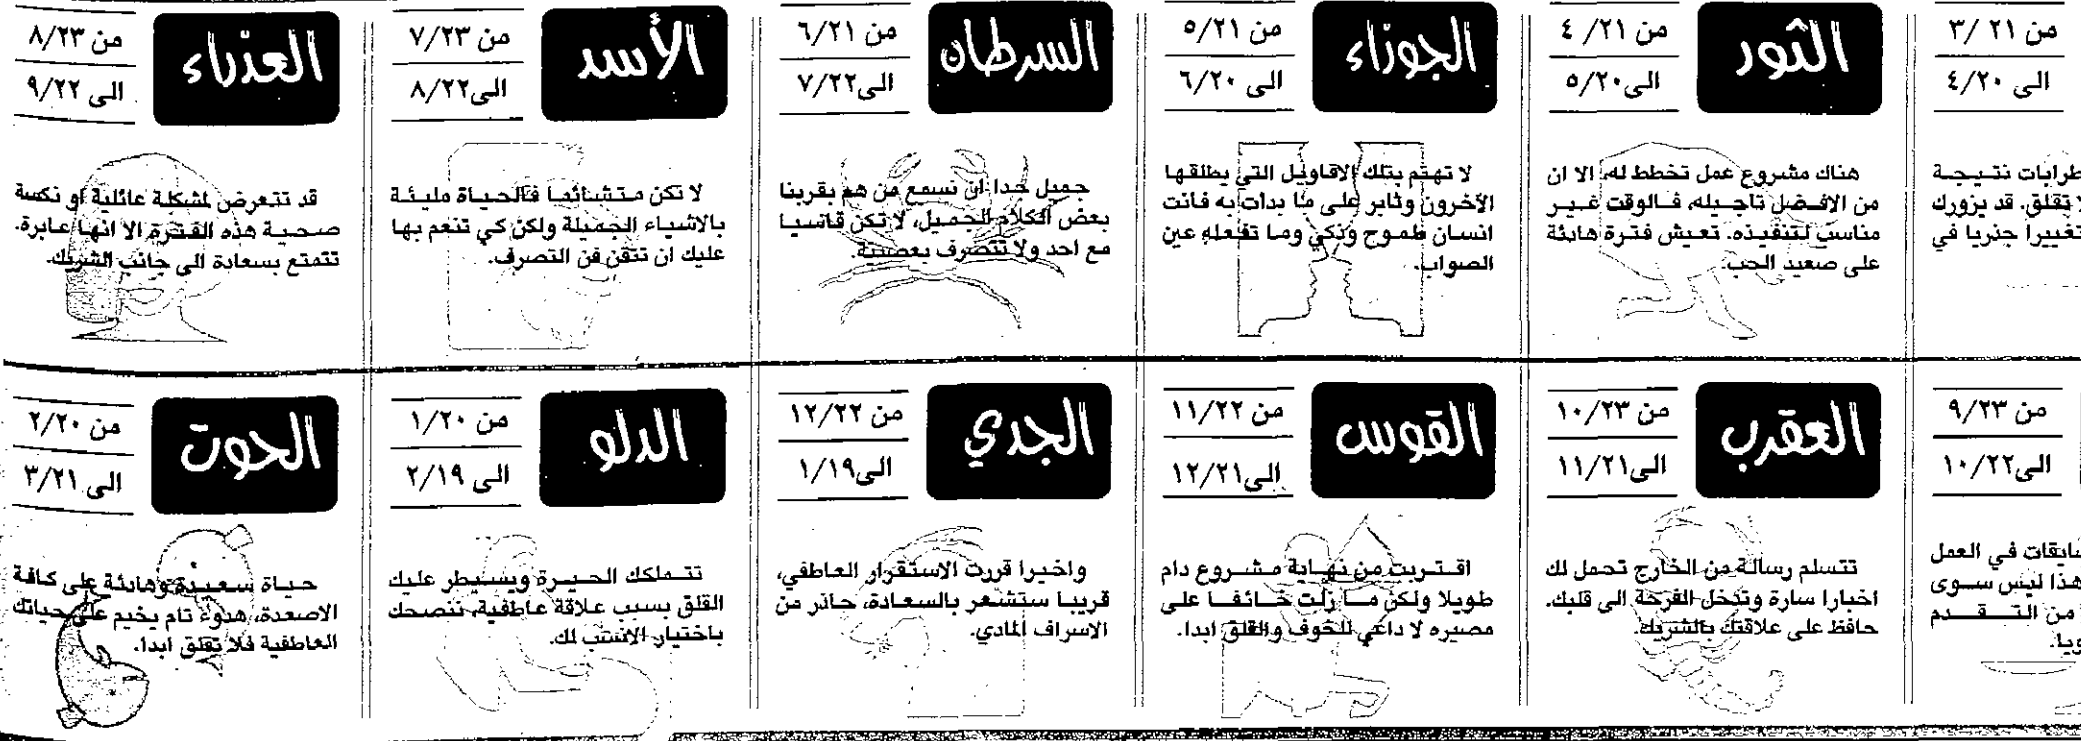 من ٣/٢١
الى ٤/٢٠
نتيجة
لا تقلق. قد يزورك
تغييرا جذريا في
الثور
من ٤/٢١
الى ٥/٢٠
هناك مشروع عمل تخطط له، الا ان
من الافضل تاجيله، فالوقت غير
مناسب لتنفيذه. تعيش فترة هادئة
على صعيد الحب.
الجوزاء
من ٥/٢١
الى ٦/٢٠
لا تهتم بتلك الاقاويل التي يطلقها
الآخرون وثابر على ما بدأت به فانت
انسان طموح وذكي وما تفعله عين
الصواب.
السرطان
من ٦/٢١
الى ٧/٢٢
جميل جدا ان نسمع من هم بقربنا
بعض الكلام الجميل، لا تكن قاسيا
مع احد ولا تتصرف بعصبية.
الأسد
من ٧/٢٣
الى ٨/٢٢
لا تكن متشائما فالحياة مليئة
بالاشياء الجميلة ولكن كي تنعم بها
عليك ان تتقن فن التصرف.
العذراء
من ٨/٢٣
الى ٩/٢٢
قد تتعرض لمشكلة عائلية او نكسة
صحية هذه الفترة الا انها عابرة.
تتمتع بسعادة الى جانب الشريك.
من ٩/٢٣
الى ١٠/٢٢
في العمل
هذا ليس سوى
من التقدم
العقرب
من ١٠/٢٣
الى ١١/٢١
تتسلم رسالة من الخارج تحمل لك
اخبارا سارة وتدخل الفرحة الى قلبك.
حافظ على علاقتك بالشريك.
القوس
من ١١/٢٢
الى ١٢/٢١
اقتربت من نهاية مشروع دام
طويلا ولكن ما زلت خائفا على
مصيره لا داعي للخوف والقلق ابدا.
الجدي
من ١٢/٢٢
الى ١/١٩
واخيرا قررت الاستقرار العاطفي،
قريبا ستشعر بالسعادة، حاذر من
الاسراف المادي.
الدلو
من ١/٢٠
الى ٢/١٩
تتملكك الحيرة ويسيطر عليك
القلق بسبب علاقة عاطفية، ننصحك
باختيار الانسب لك.
الحوت
من ٢/٢٠
الى ٣/٢١
حياة سعيدة وهادئة على كافة
الاصعدة، هدوء تام يخيم على حياتك
العاطفية فلا تقلق ابدا.